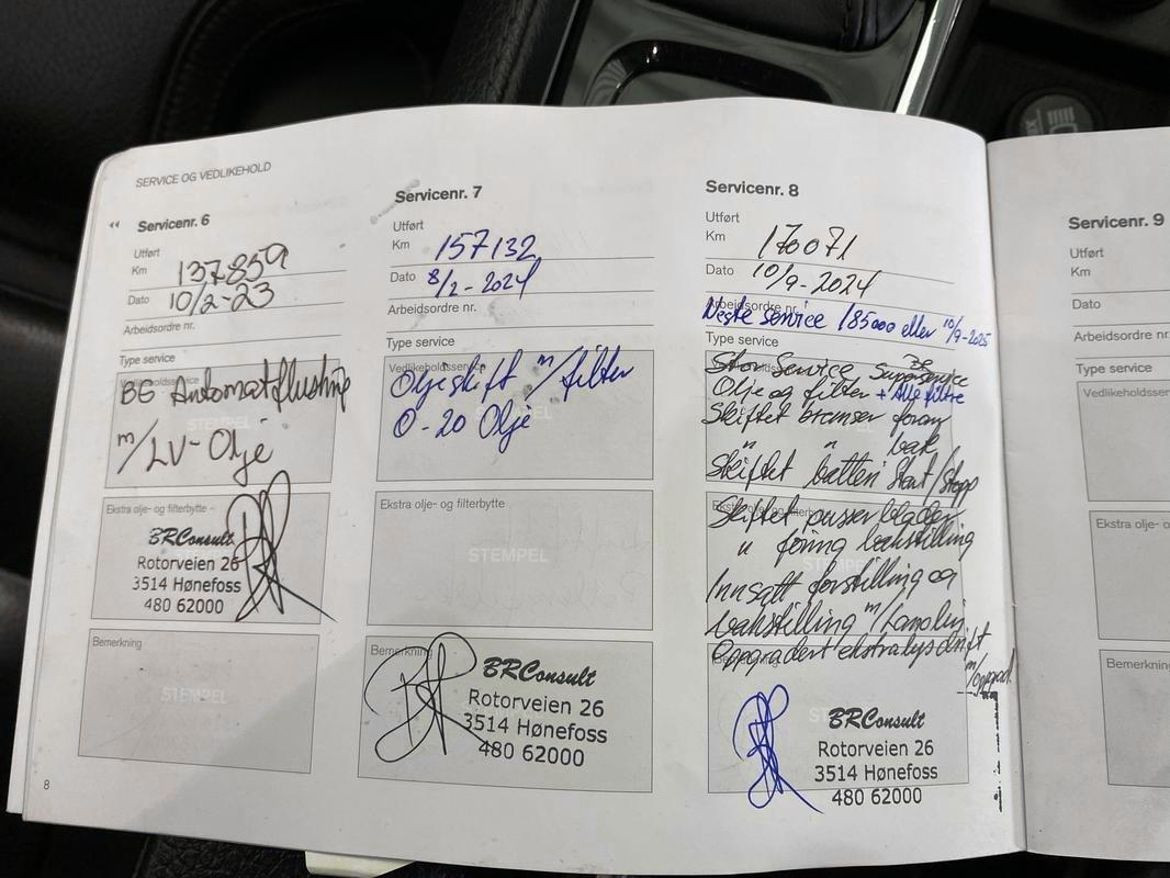 SERVICE OG VEDLIKEHOLD
Servicenr. 6
Utført
Km 137859
Dato 10/2-23
Arbeidsordre nr.
Type service
BG Automatflushing
m/LV-Olje
STEMPEL
Ekstra olje- og filterbytte
BRConsult
Rotorveien 26
3514 Hønefoss
480 62000
Bemerkning
STEMPEL
8
Servicenr. 7
Utført
Km 157132
Dato 8/2-2024
Arbeidsordre nr.
Type service
Vedlikeholdsservice
Oljeskift m/filter
0-20 Olje
Ekstra olje- og filterbytte
STEMPEL
Bemerkning
BRConsult
Rotorveien 26
3514 Hønefoss
480 62000
Servicenr. 8
Utført
Km 170071
Dato 10/9-2024
Arbeidsordre nr.
Neste service 185000 eller 10/9-2025
Type service
Stor Service Superservice
Olje og filter + Alle filtre
Skiftet bremser foran
" " bak
Skiftet batteri Start/Stopp
Skiftet pusserblader
" foring bakstilling
Innsatt forstilling og
bakstilling m/Lanolin
Oppgradert ekstralys drift
m/oppgrad.
BRConsult
Rotorveien 26
3514 Hønefoss
480 62000
Servicenr. 9
Utført
Km
Dato
Arbeidsordre nr.
Type service
Vedlikeholdsservice
Ekstra olje- o
Bemerkning